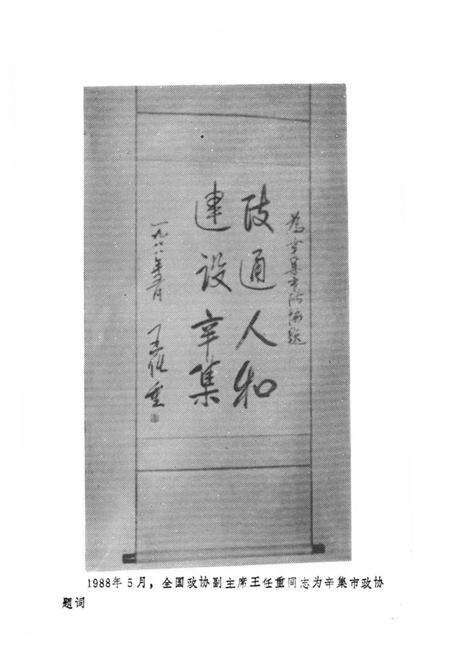 为辛集市政协题
政通人和
建设辛集
一九八八年五月
王任重
1988年5月，全国政协副主席王任重同志为辛集市政协
题词